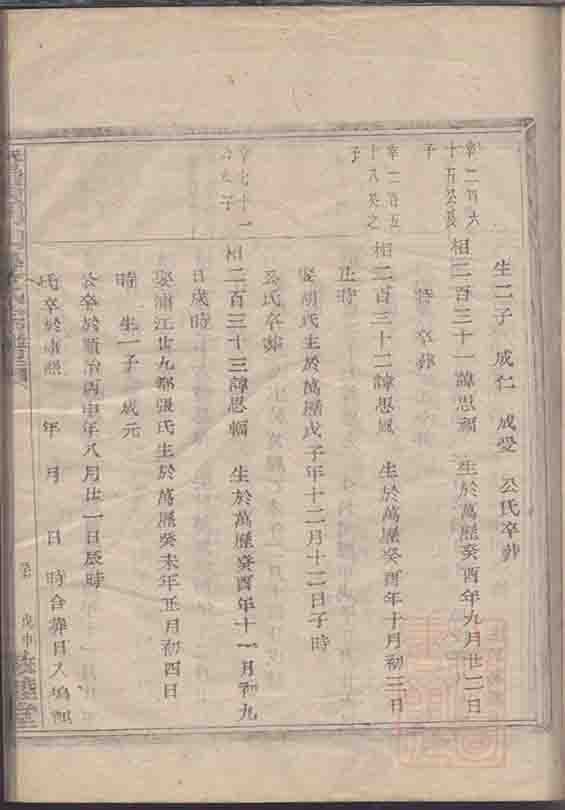 生二子 成仁 成受 公氏卒葬
幸二百六
十五公長
子
相二百三十一諱思福 生於萬歷癸酉年九月廿二日
時 卒葬
幸二百五
十八公之
子
相二百三十二諱思鳳 生於萬歷癸酉年十月初三日
丑時
娶胡氏生於萬歷戊子年十二月十二日子時
公氏卒葬
幸七十一
公之子
相二百三十三諱思輻 生於萬歷癸酉年十一月初九
日戌時
娶浦江廿九都張氏生於萬歷癸未年正月初四日
時 生一子 成元
公卒於順治丙申年八月廿一日辰時
氏卒於康熙 年 月 日 時合葬日入塢
戊申